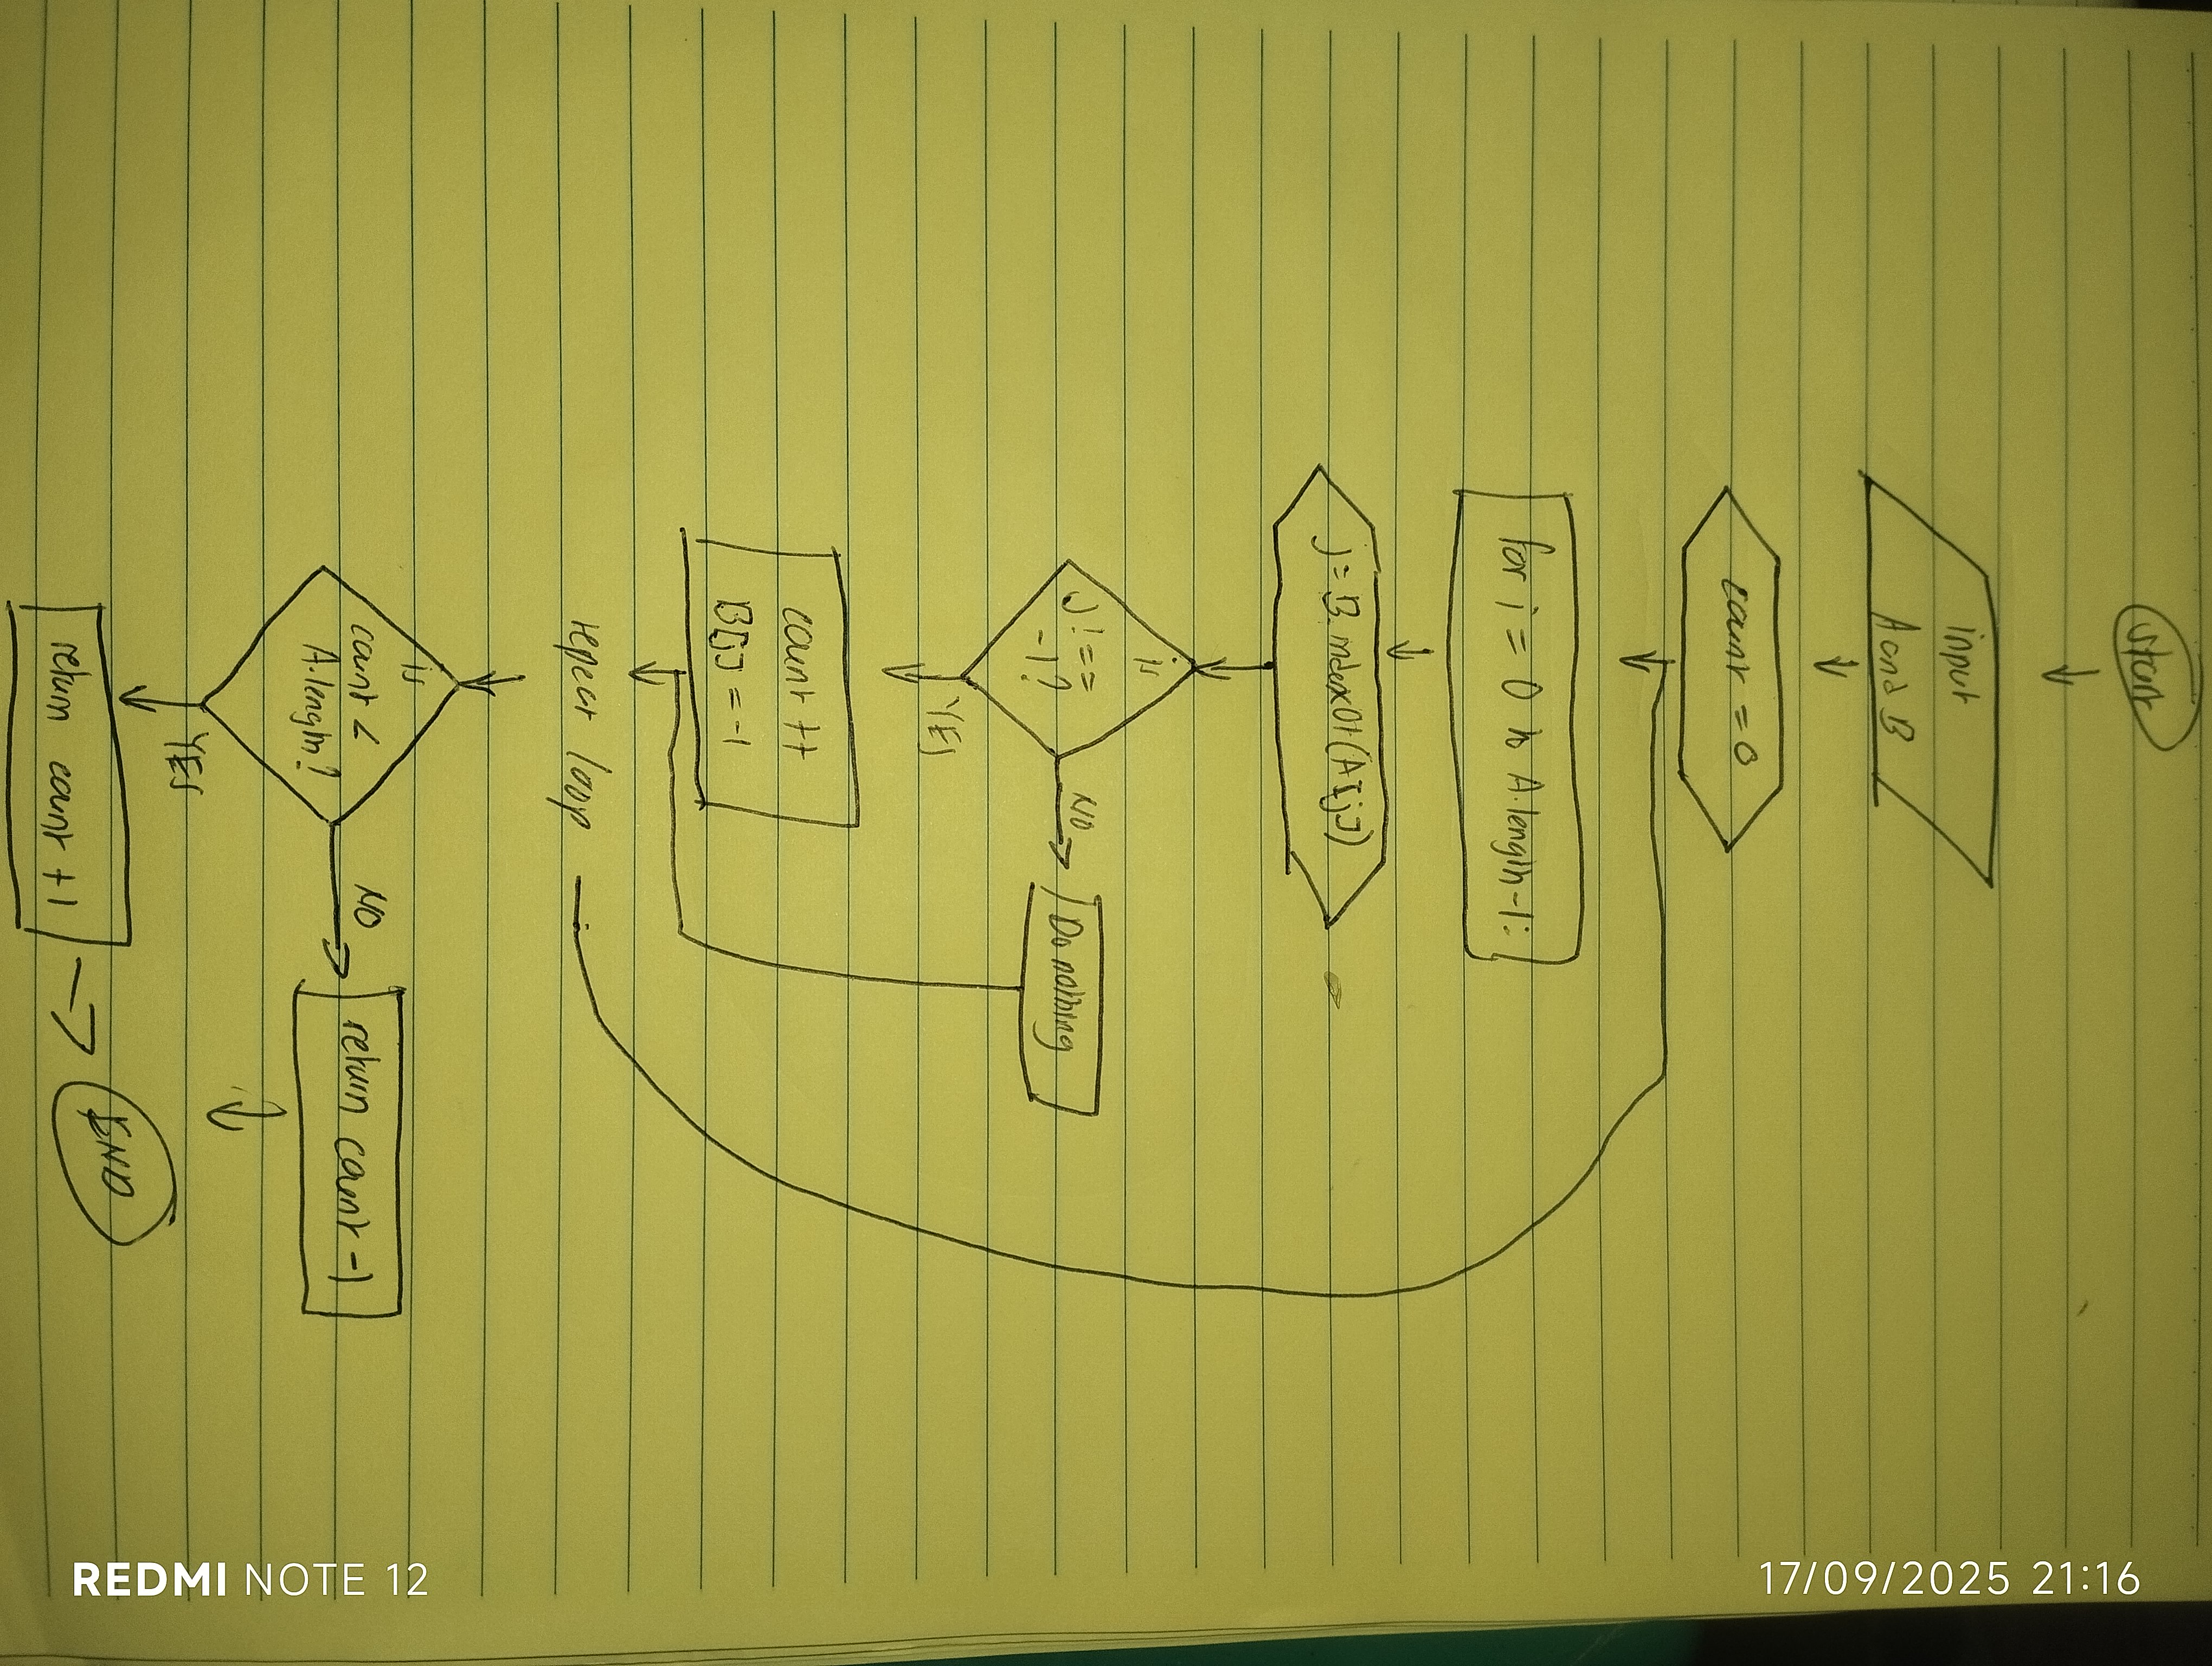 Start
input
A and B
count = 0
for i = 0 to A.length-1:
j = B.indexOf(A[i])
is
j !==
-1?
NO
Do nothing
YES
count ++
B[j] = -1
repeat loop
is
count <
A.length?
NO
return count -1
YES
return count +1
END
REDMI NOTE 12
17/09/2025 21:16